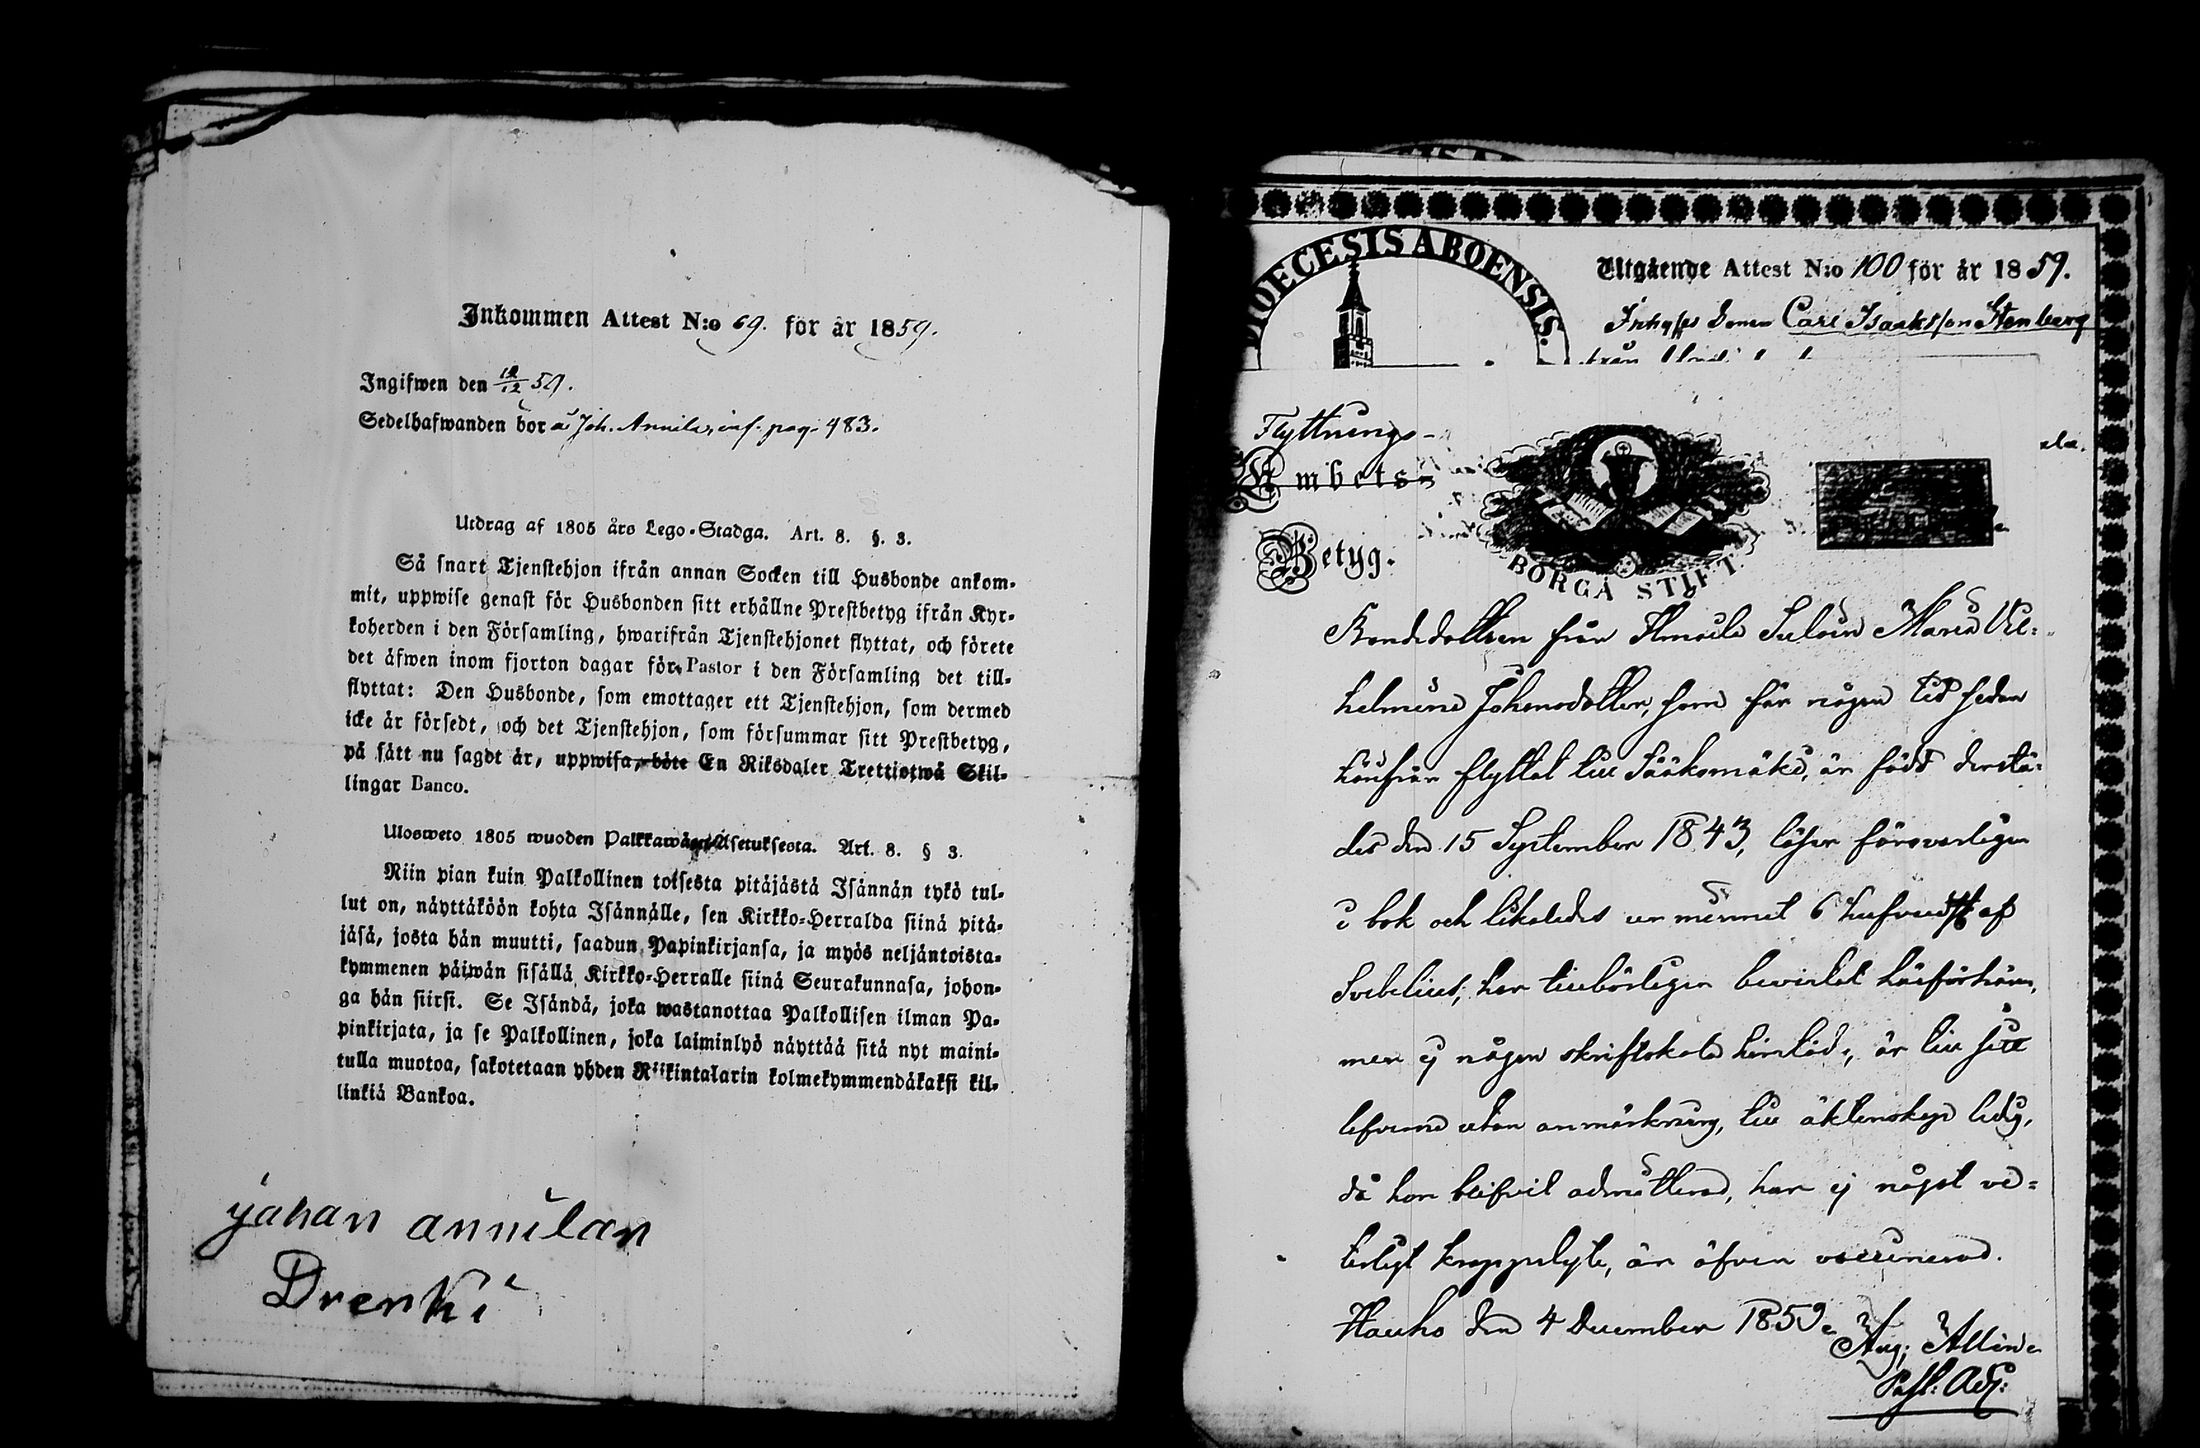 Inkommen Attest N:o 69. för år 1859.
Ingifwen den 12/12 59.
Sedelhafwanden bor å Joh. Annila, inf. pag. 483.
Utdrag af 1805 års Lego-Stadga. Art. 8. §. 3.
Så snart Tjenstehjon ifrån annan Socken till Husbonde ankom-
mit, uppwise genast för Husbonden sitt erhållne Prestbetyg ifrån Kyr-
koherden i den Församling, hwarifrån Tjenstehjonet flyttat, och förete
det äfwen inom fjorton dagar för Pastor i den Församling det till-
flyttat: Den Husbonde, som emottager ett Tjenstehjon, som dermed
icke är försedt, och det Tjenstehjon, som försummar sitt Prestbetyg,
på sätt nu sagdt är, uppwisa, böte En Riksdaler Trettiotwå Skil-
lingar Banco.
Ulosweto 1805 wuoden Palkkawäen-Asetuksesta. Art. 8. § 3.
Niin pian kuin Palkollinen toisesta pitäjästä Isännän tykö tul-
lut on, näyttäköön kohta Isännälle, sen Kirkko-Herralda siinä pitä-
jäsä, josta hän muutti, saadun Papinkirjansa, ja myös neljäntoista-
kymmenen päiwän sisällä Kirkko-Herralle siinä Seurakunnasa, johon-
ga hän siirsi. Se Isändä, joka wastanottaa Palkollisen ilman Pa-
pinkirjata, ja se Palkollinen, joka laiminlyö näyttää sitä nyt maini-
tulla muotoa, sakotetaan yhden Riikintalarin kolmekymmendäkaksi kil-
linkiä Bankoa.
johan annilan
Drenki
DIOECESIS ABOENSIS.
Utgående Attest N:o 100 för år 1859.
Carl Isaksson Stenberg
Flyttnings-
Ambets-
Betyg.
BORGÅ STIFT.
Bondedottren från Maria Vil-
helmina Johansdotter, som för någon tid sedan
härifrån flyttat till Sääksmäki, är född derstä-
des den 15 September 1843, läser försvarligen
i bok och likaledes ur minnet 6 hufvudst af
Svebelius; har tillbörligen bevistat läsförhören,
men ej någon skriftskola härstäd:, är till sitt
lefverne utan anmärkning, till äktenskap ledig,
då hon blifvit admitterad, har ej något ve-
terligt kroppslyte, är äfven vaccinerad.
Hauho den 4 December 1859.
Aug: Allén
Past: Adj: